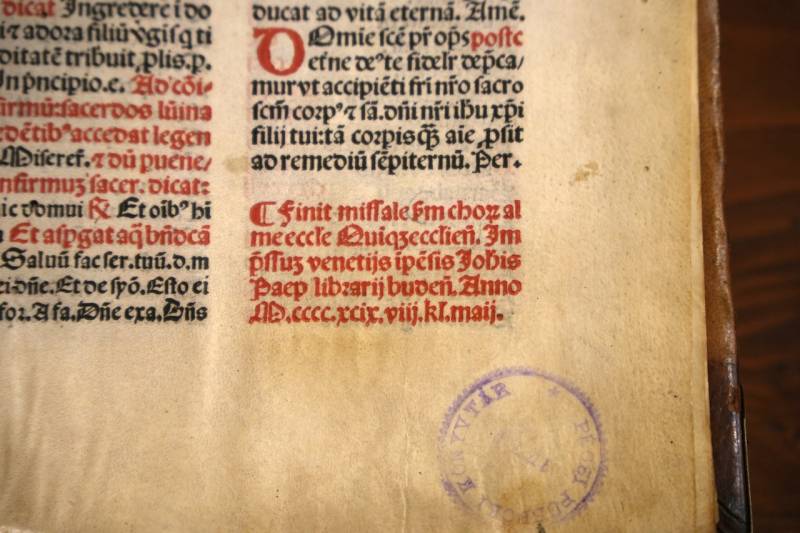 dicat Ingredere i do
i ⁊ adora filiū v̄gis q ti
ditatē tribuit, ꝓlis. p.
In p̄ncipio. e. Ad cōi⸗
firmū: sacerdos lūina
dētibꝰ accedat legen
Miseref. ⁊ dū puene⸗
nfirmuʒ sacer. dicat:
ic domui ℟ Et oībꝰ hi
n Et asꝑgat aq̄ bn̄dcā
Saluū fac ser. tuū. d. m
ei dn̄e. Et de syō. Esto ei
for. A fa. Dn̄e exa. Dn̄s
ducat ad vitā eternā. Amē.
DOmie scē pr̄ op̄s postc
eterne
muryt accipiēti fr̄i nr̄o sacro
scm̄ corpꝰ ⁊ sā. dn̄i nr̄i ihu xp̄i
filij tui: tā corpis qʒ aīe ꝓsit
ad remediū sēpiternū. Per.
¶ Finit missale scdm choꝝ al
me eccl̄e Quiqʒecclien̄. Im
p̄ssuʒ venetijs īpēsis Joh̄is
Paep librarij buden̄. Anno
M.cccc.xcix.viij.kl.maij.
PÉCSI PÜSPÖKI KÖNYVTÁR